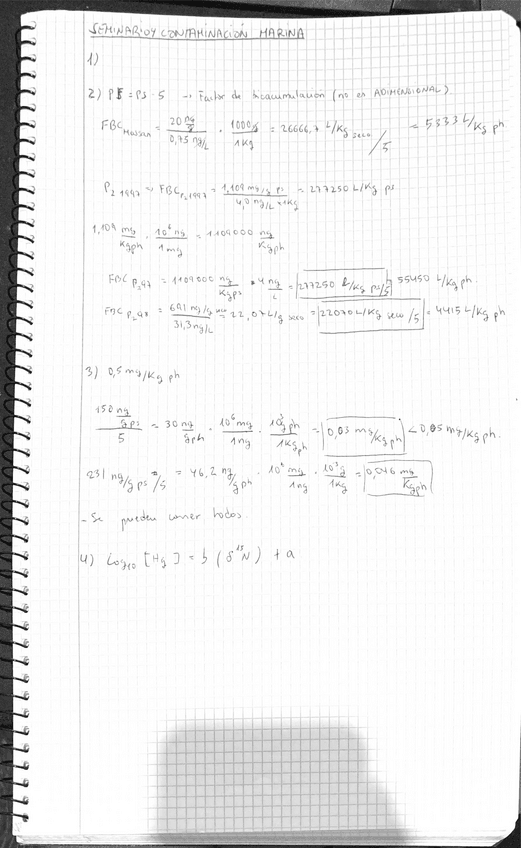 SEMINARIO4 CONTAMINACIÓN MARINA
1)
2) PF = PS · 5 → Factor de bioacumulación (no es ADIMENSIONAL)
FBC = 20 ng/g / 0,75 ng/L · 1000g / 1Kg = 26666,7 L/Kg seco /5 = 5333 L/Kg ph
P2 1997 → FBC P2 1997 = 1,109 mg/g ps / 4,0 ng/L × 1Kg = 277250 L/Kg ps
1,109 mg/Kgph · 10⁶ ng / 1 mg = 1109000 ng/Kgph
FBC P2 97 = 1109000 ng/Kgps · 4 ng/L = 277250 L/Kg ps/5 = 55450 L/Kg ph
FBC P2 98 = 691 ng/g / 31,3 ng/L = 22,07 L/g seco = 22070 L/Kg seco /5 = 4415 L/Kg ph
3) 0,5 mg/Kg ph
150 ng/g ps / 5 = 30 ng/gph · 10⁶ mg / 1ng · 10³ gph / 1Kgph = 0,03 mg/Kgph < 0,05 mg/Kg ph.
231 ng/g ps /5 = 46,2 ng/gph · 10⁶ mg / 1ng · 10³ g / 1Kg = 0,046 mg/Kgph
- Se pueden comer todos.
4) Log10 [Hg] = b (δ¹⁵N) + a